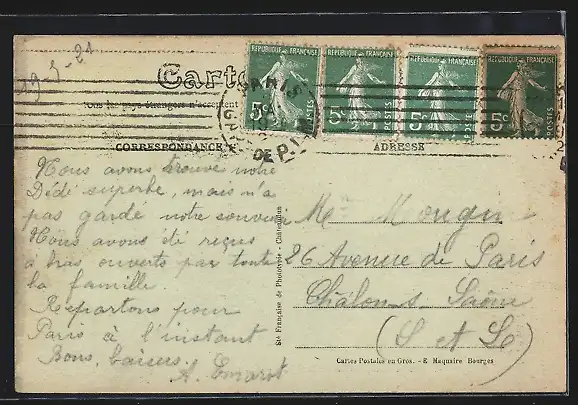 19-5-21
REPUBLIQUE FRANÇAISE REPUBLIQUE FRANÇAISE REPUBLIQUE FRANÇAISE REPUBLIQUE FRANÇAISE
5c POSTES 5c POSTES 5c POSTES 5c POSTES
Carte
Tous les pays étrangers n'acceptent
PARIS
GARE
DE
CORRESPONDANCE
ADRESSE
Nous avons trouvé notre
Dédé superbe, mais n'a
pas gardé notre souvenir
Nous avons été reçus
à bras ouverts par toute
la famille.
Repartons pour
Paris à l'instant
Bons baisers.
Sté Française de Phototypie - Châteaudun
Mougin
26 Avenue de Paris
Châlon-s-Saône
(S et L)
Cartes Postales en Gros. - E. Maquaire Bourges